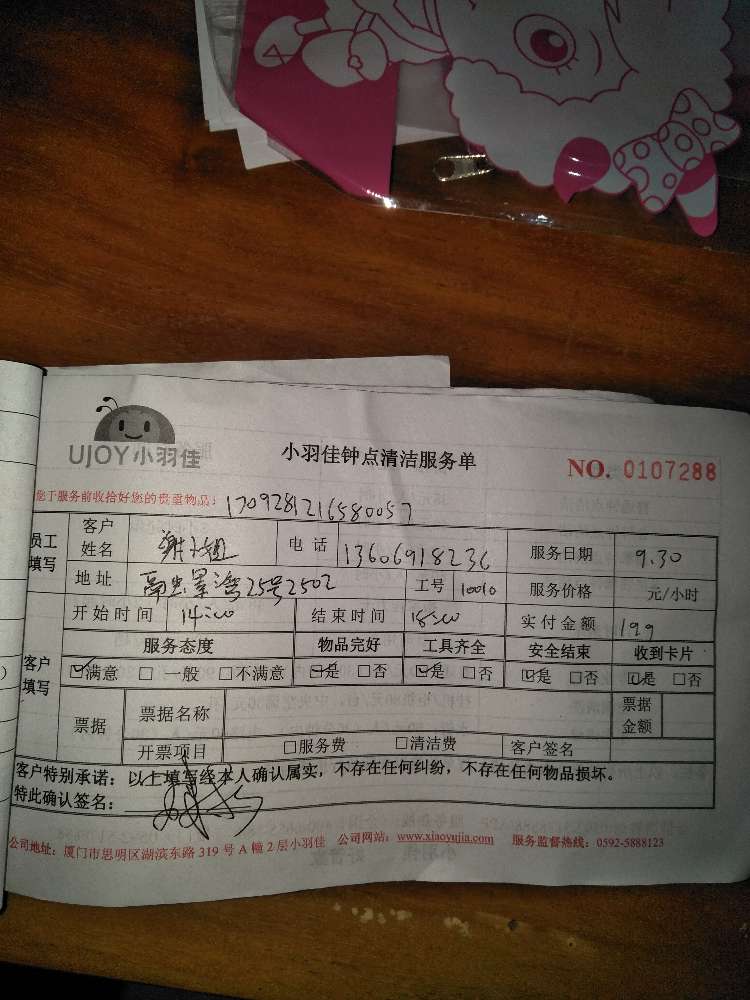 UJOY小羽佳
小羽佳钟点清洁服务单
NO. 0107288
您于服务前收拾好您的贵重物品：1709281216580057
员工填写 客户姓名 谢小姐 电话 13606918236 服务日期 9.30
地址 景湾25号2502 工号 10010 服务价格 元/小时
开始时间 14:00 结束时间 18:00 实付金额 199
客户填写 服务态度 物品完好 工具齐全 安全结束 收到卡片
☑满意 □一般 □不满意 ☑是 □否 ☑是 □否 ☑是 □否 ☑是 □否
票据 票据名称 票据金额
开票项目 □服务费 □清洁费 客户签名
客户特别承诺：以上填写经本人确认属实，不存在任何纠纷，不存在任何物品损坏。
特此确认签名：
公司地址：厦门市思明区湖滨东路 319 号 A 幢 2 层小羽佳 公司网站：www.xiaoyujia.com 服务监督热线：0592-5888123